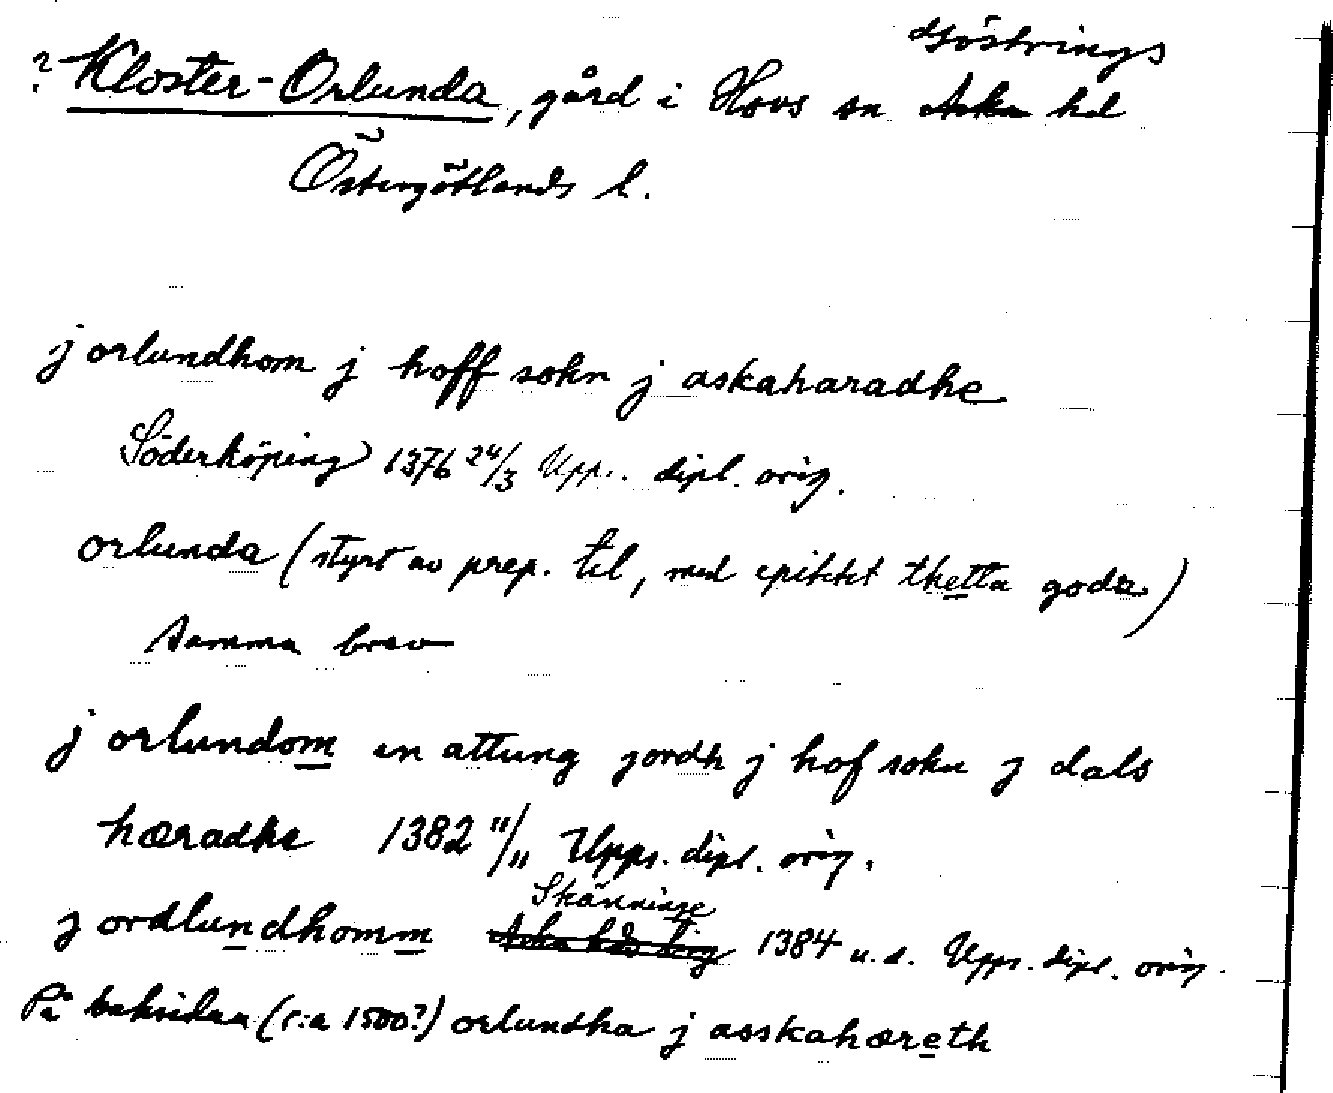 Göstrings
? Kloster-Orlunda, gård i Hovs sn Aska hd
Östergötlands l.
j orlundhom j hoff sokn j askaharadhe
Söderköping 1376 24/3 Upps. dipl. orig.
orlunda (styrt av prep. til, med epitetet thetta goda)
Samma brev
j orlundom en attung jordh j hof sokn j dals
hæradhe 1382 11/11 Upps. dipl. orig.
Skänninge
j ordlundhomm Aska hds ting 1384 u.d. Upps. dipl. orig.
På baksidan (c:a 1500?) orlundha j asskahæreth